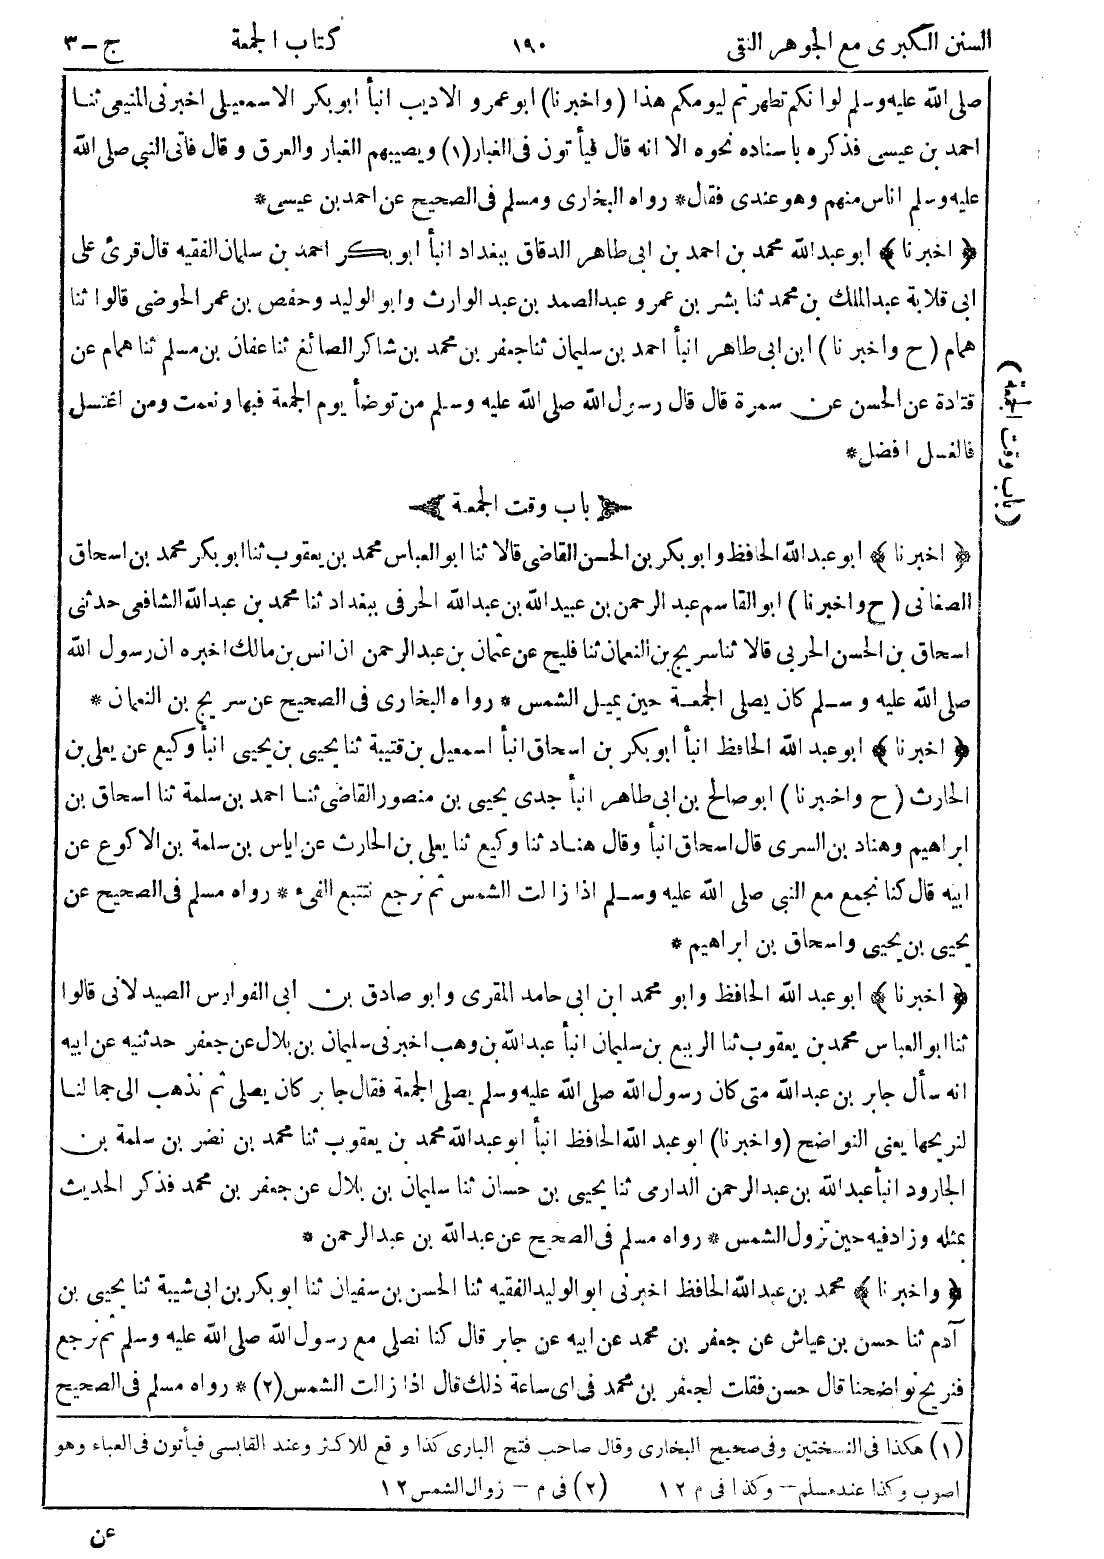 السنن الكبرى مع الجوهر النقى ١٩٠ كتاب الجمعة ج-٣
صلى الله عليه وسلم لوانكم تطهرتم ليومكم هذا (واخبرنا) ابوعمرو الاديب انبأ ابوبكر الاسمعيلى اخبرنى المنيعى ثنا
احمد بن عيسى فذكره باسناده نحوه الا انه قال فيأتون فى الغبار(١) ويصيبهم الغبار والعرق وقال فاتى النبى صلى الله
عليه وسلم اناس منهم وهوعندى فقال* رواه البخارى ومسلم فى الصحيح عن احمد بن عيسى*
﴿اخبرنا﴾ ابوعبدالله محمد بن احمد بن ابى طاهر الدقاق ببغداد انبأ ابوبكر احمد بن سلمان الفقيه قال قرئ على
ابى قلابة عبدالملك بن محمد ثنا بشر بن عمرو عبدالصمد بن عبد الوارث وابو الوليد وحفص بن عمر الحوضى قالوا ثنا
همام (ح واخبرنا) ابن ابى طاهر انبأ احمد بن سليمان ثنا جعفر بن محمد بن شاكر الصائغ ثنا عفان بن مسلم ثنا همام عن
قتادة عن الحسن عن سمرة قال قال رسول الله صلى الله عليه وسلم من توضأ يوم الجمعة فبها ونعمت ومن اغتسل
فالغسل افضل*
باب وقت الجمعة
(باب وقت الجمعة)
﴿اخبرنا﴾ ابوعبدالله الحافظ وابوبكر بن الحسن القاضى قالا ثنا ابوالعباس محمد بن يعقوب ثنا ابوبكر محمد بن اسحاق
الصغانى (ح واخبرنا) ابوالقاسم عبد الرحمن بن عبيدالله بن عبدالله الحرفى ببغداد ثنا محمد بن عبدالله الشافعى حدثنى
اسحاق بن الحسن الحربى قالا ثنا سريج بن النعمان ثنا فليح عن عثمان بن عبدالرحمن ان انس بن مالك اخبره ان رسول الله
صلى الله عليه وسلم كان يصلى الجمعة حين يميل الشمس * رواه البخارى فى الصحيح عن سريج بن النعمان *
﴿اخبرنا﴾ ابوعبد الله الحافظ انبأ ابوبكر بن اسحاق انبأ اسمعيل بن قتيبة ثنا يحيى بن يحيى انبأ وكيع عن يعلى بن
الحارث (ح واخبرنا) ابوصالح بن ابى طاهر انبأ جدى يحيى بن منصور القاضى ثنا احمد بن سلمة ثنا اسحاق بن
ابراهيم وهناد بن السرى قال اسحاق انبأ وقال هناد ثنا وكيع ثنا يعلى بن الحارث عن اياس بن سلمة بن الاكوع عن
ابيه قال كنا نجمع مع النبى صلى الله عليه وسلم اذا زالت الشمس ثم نرجع نتتبع الفىء * رواه مسلم فى الصحيح عن
يحيى بن يحيى واسحاق بن ابراهيم *
﴿اخبرنا﴾ ابوعبد الله الحافظ وابو محمد ابن ابى حامد المقرى وابو صادق بن أبى الفوارس الصيدلانى قالوا
ثنا ابوالعباس محمد بن يعقوب ثنا الربيع بن سليمان انبأ عبدالله بن وهب اخبرنى سليمان بن بلال عن جعفر حدثنيه عن ابيه
انه سأل جابر بن عبدالله متى كان رسول الله صلى الله عليه وسلم يصلى الجمعة فقال جابر كان يصلى ثم نذهب الى جمالنا
لنريحها يعنى النواضح (واخبرنا) ابوعبد الله الحافظ انبأ ابوعبدالله محمد بن يعقوب ثنا محمد بن نضر بن سلمة بن
الجارود انبأ عبدالله بن عبدالرحمن الدارمى ثنا يحيى بن حسان ثنا سليمان بن بلال عن جعفر بن محمد فذكر الحديث
بمثله وزاد فيه حين تزول الشمس * رواه مسلم فى الصحيح عن عبدالله بن عبدالرحمن *
﴿واخبرنا﴾ محمد بن عبدالله الحافظ اخبرنى ابوالوليد الفقيه ثنا الحسن بن سفيان ثنا ابوبكر بن ابى شيبة ثنا يحيى بن
آدم ثنا حسن بن عياش عن جعفر بن محمد عن ابيه عن جابر قال كنا نصلى مع رسول الله صلى الله عليه وسلم ثم نرجع
فنريح نواضحنا قال حسن فقلت لجعفر بن محمد فى اى ساعة ذلك قال اذا زالت الشمس(٢)* رواه مسلم فى الصحيح
(١) هكذا فى النسختين وفى صحيح البخارى وقال صاحب فتح البارى كذا وقع للاكثر وعند القابسى فيأتون فى العباء وهو
اصوب وكذا عند مسلم- وكذا فى م ١٢ (٢) فى م - زوال الشمس ١٢
عن